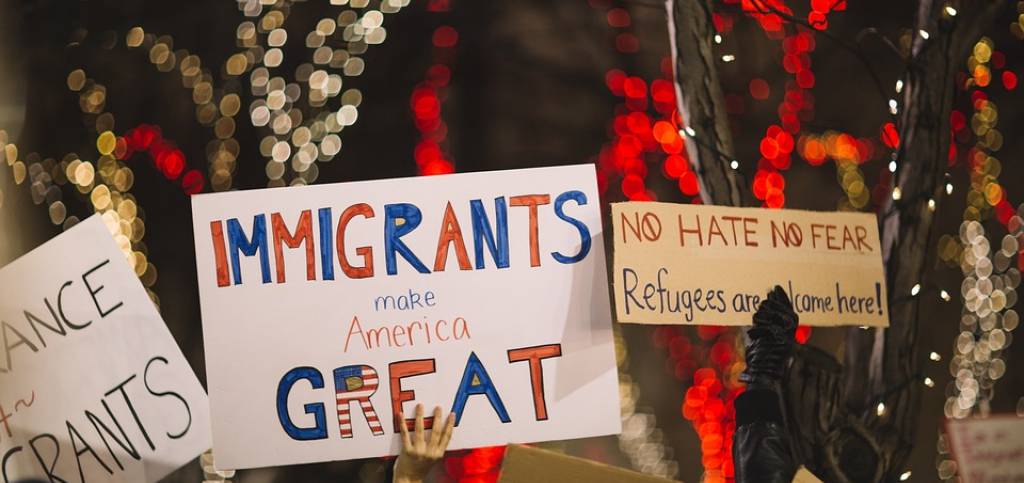 ANCE
RANTS
IMMIGRANTS
make
America
GREAT
NO HATE NO FEAR
Refugees are come here!